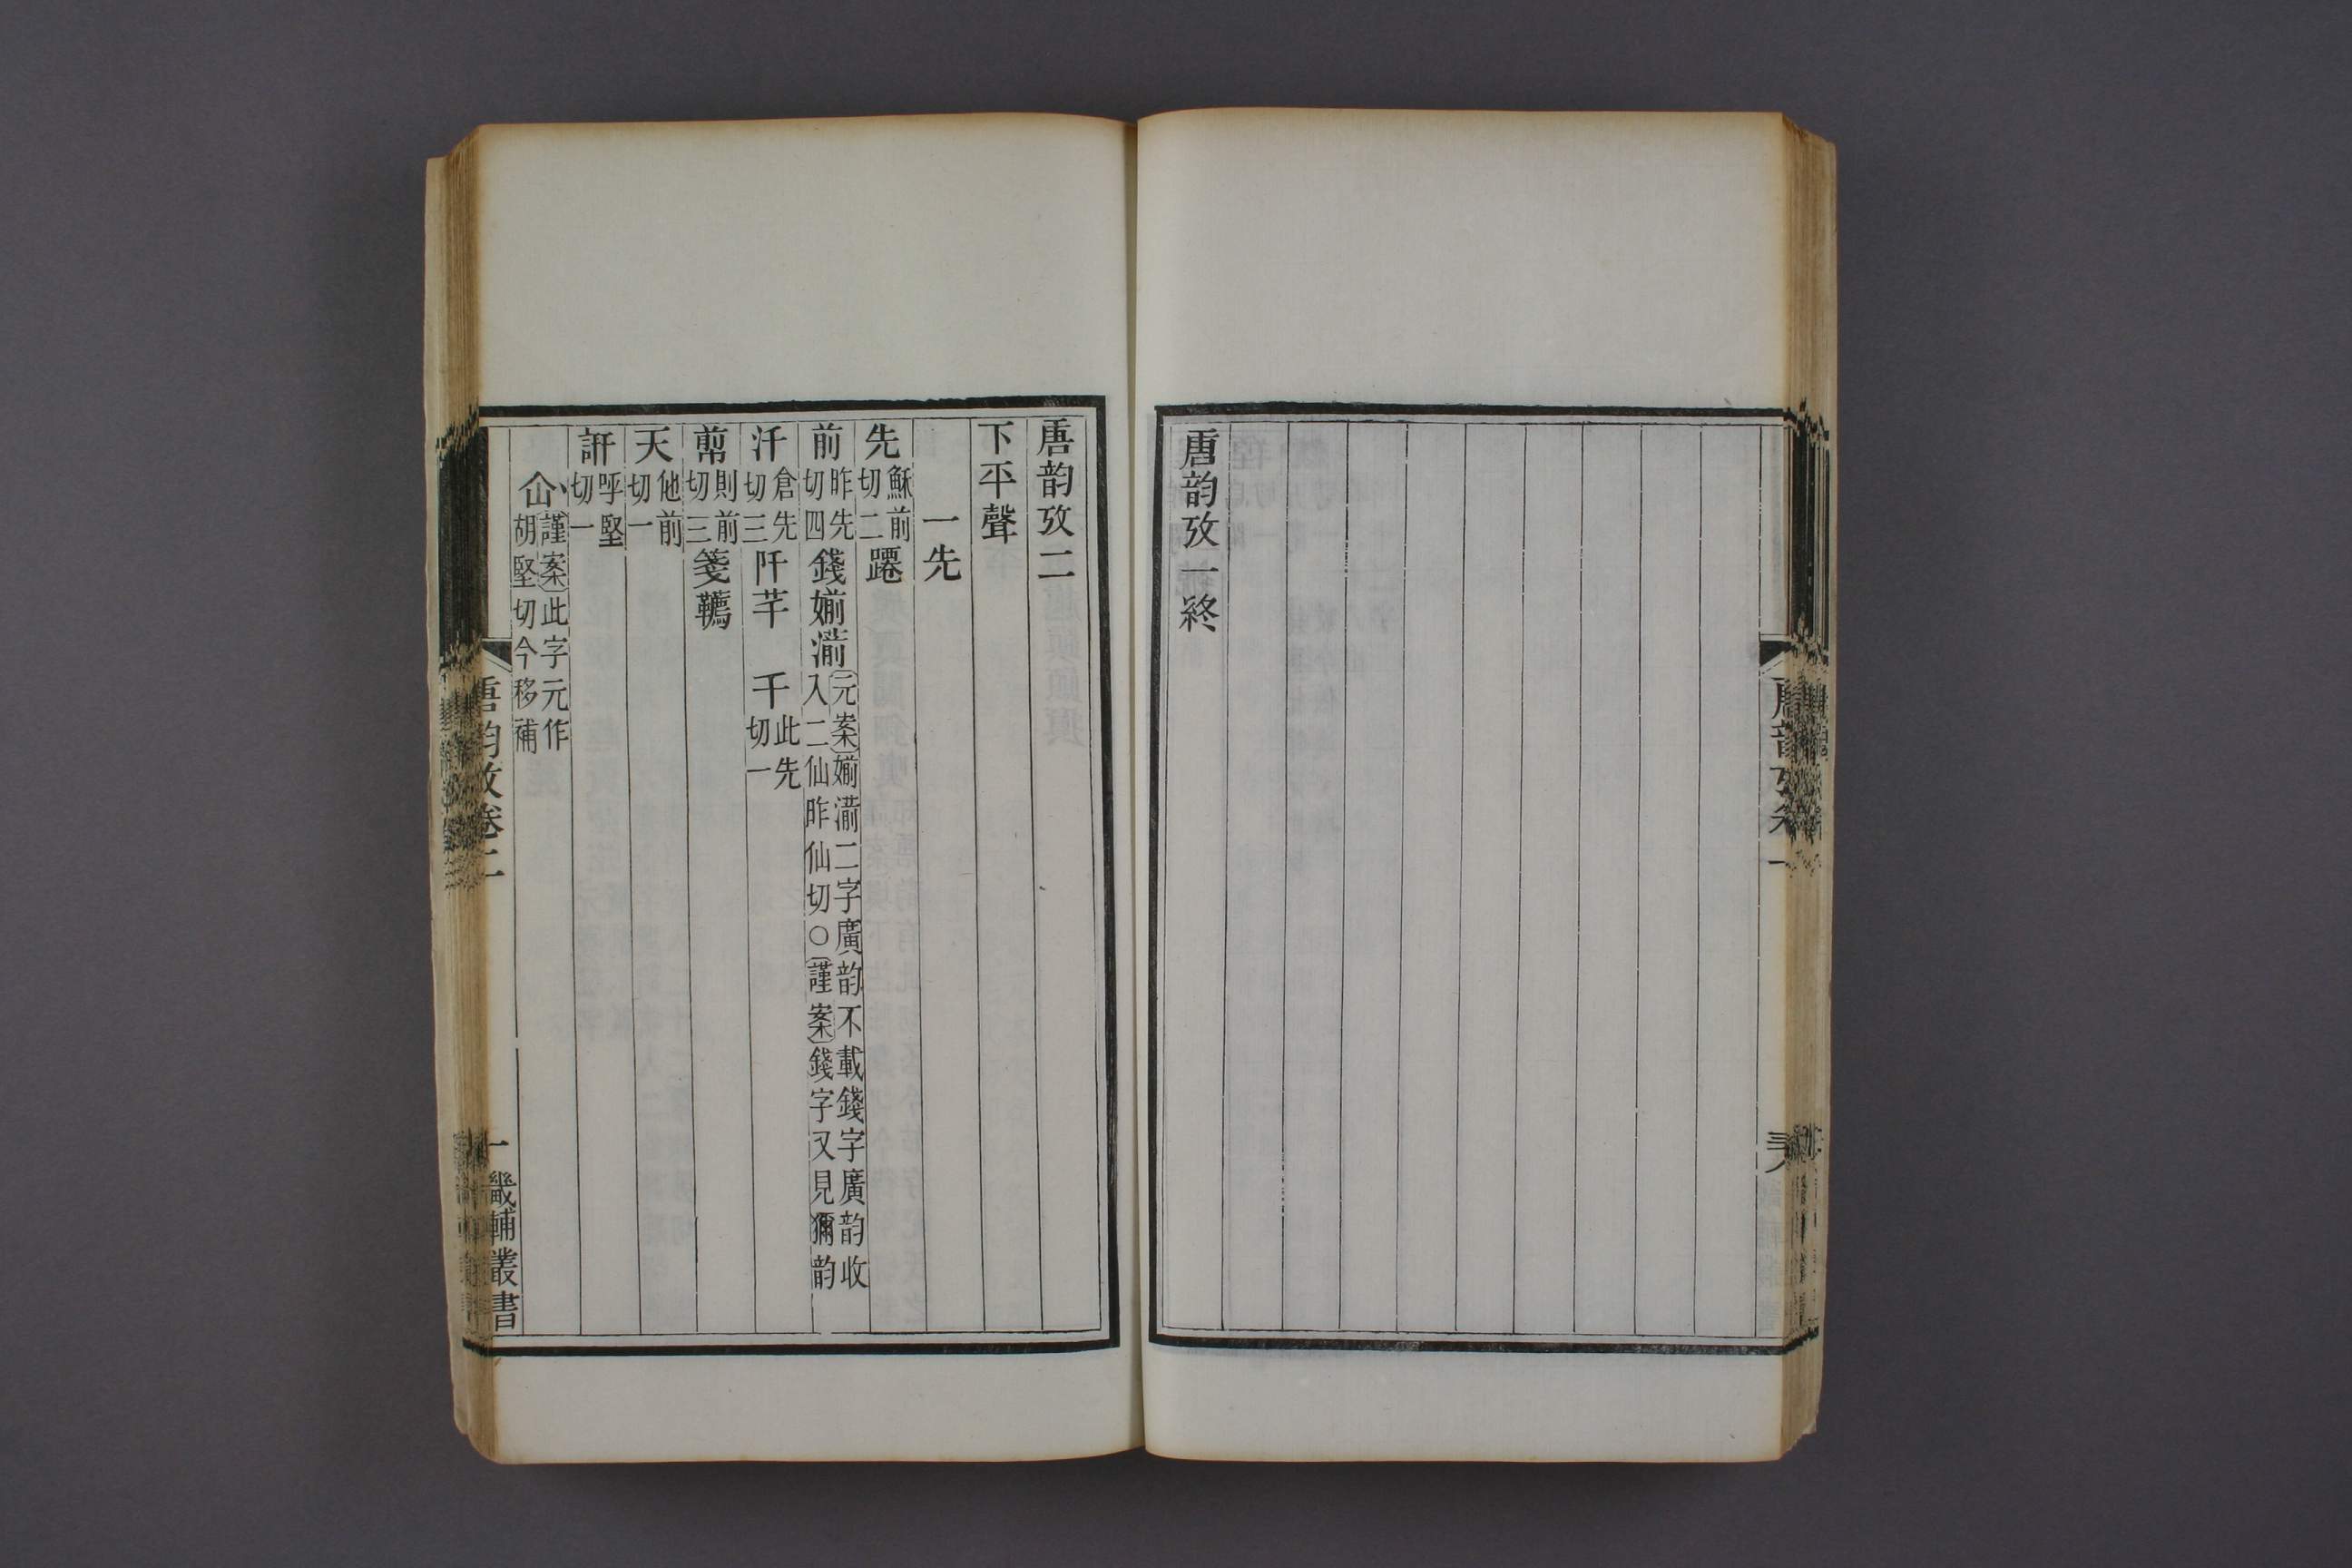 唐韵攷一終
唐韵攷卷一
唐韵攷二
下平聲
一先
先穌前切二躚
前昨先切四錢媊湔元案媊湔二字廣韵不載錢字廣韵收
入二仙昨仙切○謹案錢字又見獮韵
汘倉先切三阡芊 千此先切一
䉍則前切三箋韉
天他前切一
訮呼堅切一
謹案此字元作
胡堅切今移補
唐韵攷卷二
一畿輔叢書